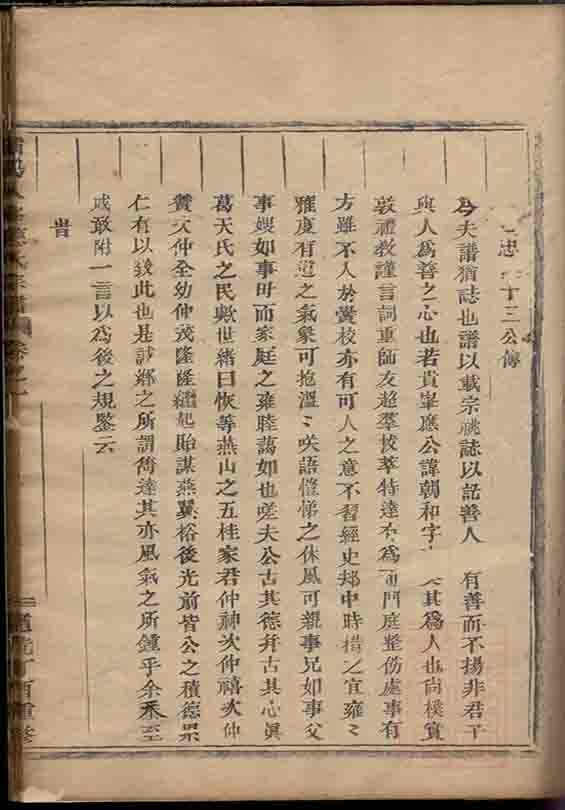 忠 十三公傳
今夫譜猶誌也譜以載宗祧誌以記善人 有善而不揚非君子
與人為善之心也若貴峯應公諱朝和字 其為人也尚樸實
敦禮教謹言詞重師友超羣拔萃特達 為 門庭整傷處事有
方雖不入於黌校亦有可人之意不習經史却中時措之宜雍〻
雅度有道之氣象可抱溫〻咲語愷悌之休風可親事兄如事父
事嫂如事母而家庭之雍睦藹如也嗟夫公古其德并古其心眞
葛天氏之民歟世緒曰恢等燕山之五桂家君仲 次仲禧次仲
贊次仲全幼仲茂隆隆繼起貽謀燕翼裕後光前皆公之積德累
仁有以致此也是 鄉之所謂 達其亦風氣之所鍾乎余忝至
戚敢附一言以為後之規鑒云
旹
宗譜 卷之
道光丁酉重修